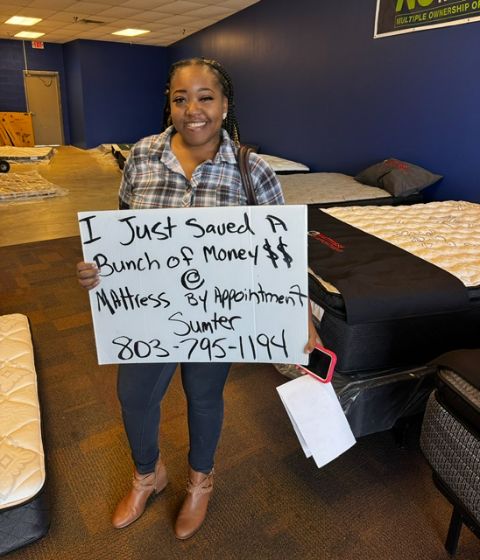 MULTIPLE OWNERSHIP O
EXIT
I Just Saved A
Bunch of Money $$
@
Mattress By Appointment
Sumter
803-795-1194